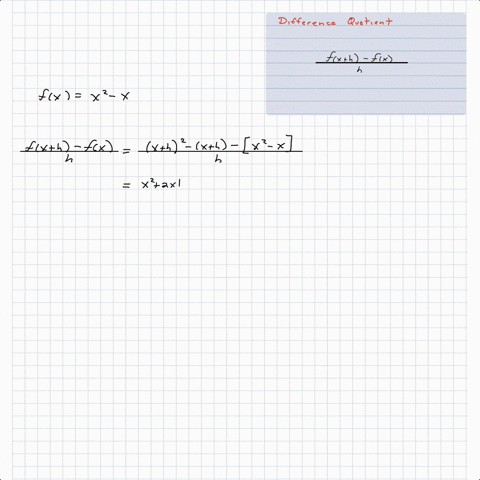 Difference Quotient
f(x+h) - f(x) / h
f(x) = x² - x
f(x+h) - f(x) / h = (x+h)² - (x+h) - [x² - x] / h
= x² + 2x|